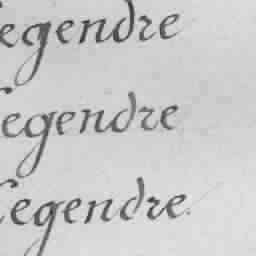 Legendre
Legendre
Legendre.